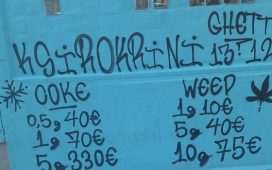 GHETT
KSIROKRINI 13°12
COKE
0,5g 40€
1g 70€
5g 330€
WEED
1g 10€
5g 40€
10g 75€